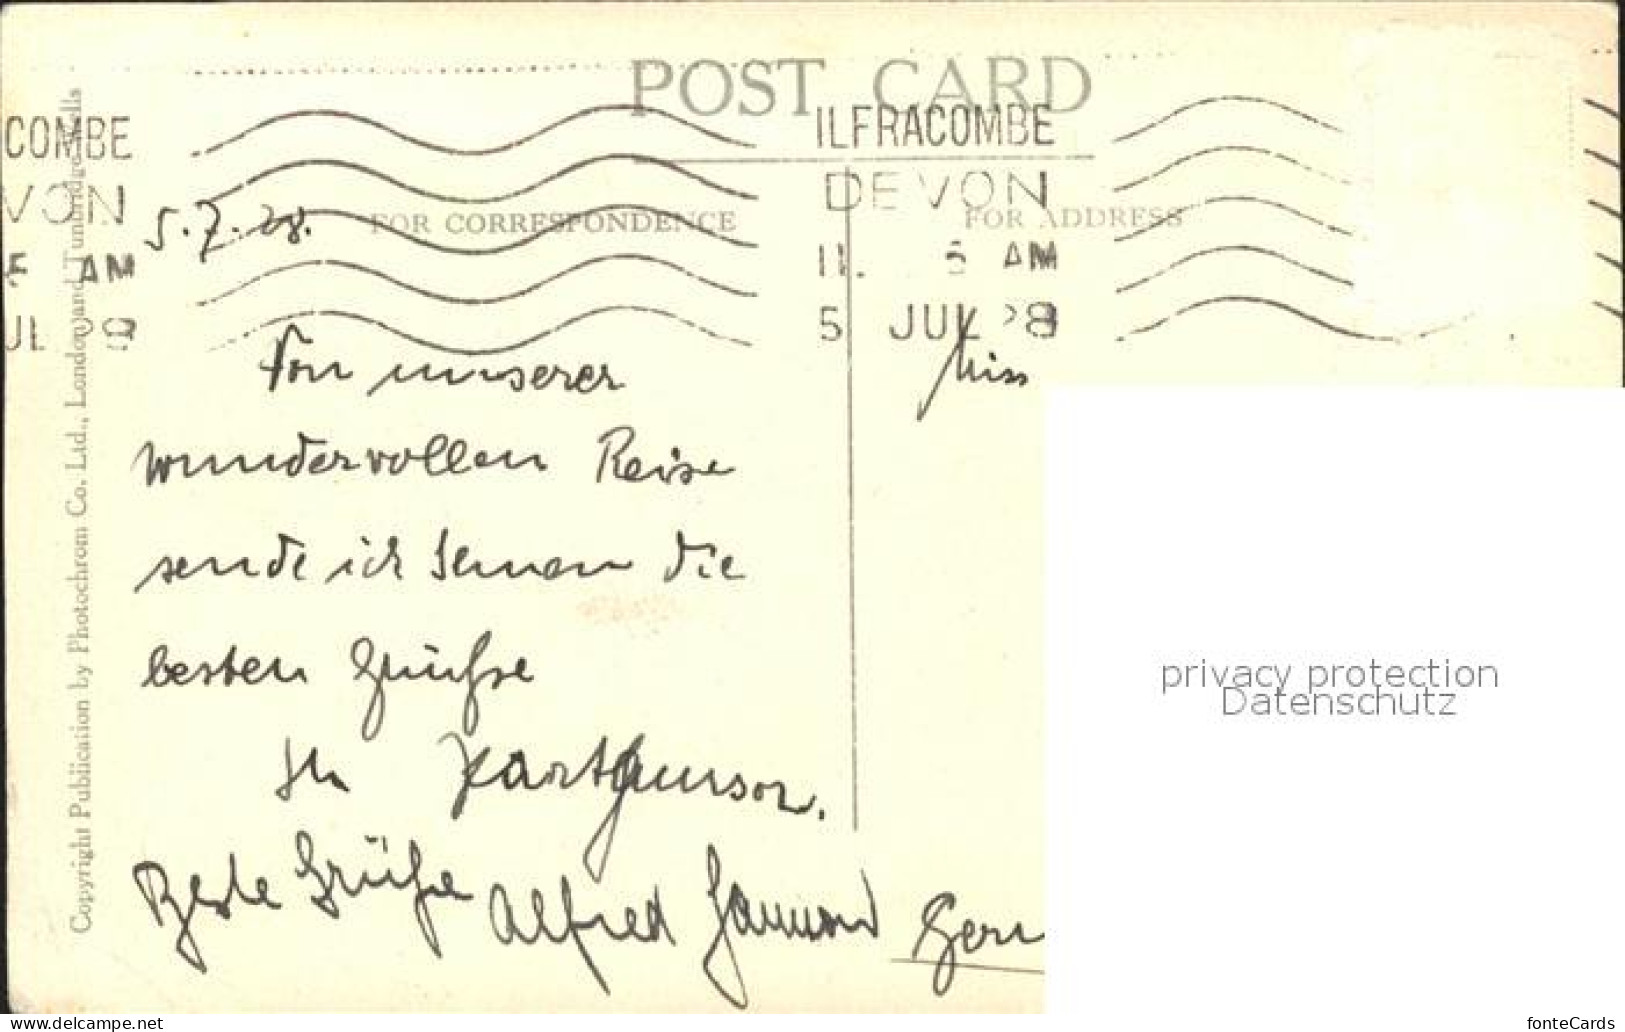 POST CARD
COMBE
VON
AM
ILFRACOMBE
DEVON
AM
5 JUL 28
FOR CORRESPONDENCE
FOR ADDRESS
Copyright Publication by Photochrom Co. Ltd., London and Tunbridge Wells
5.7.28.
Von unserer
wundervollen Reise
sende ich Ihnen die
besten Grüße
Ihr
Beste Grüße Alfred
Miss
Germ
privacy protection
Datenschutz
https://www.ansichtskarten-center.de
fonteCards